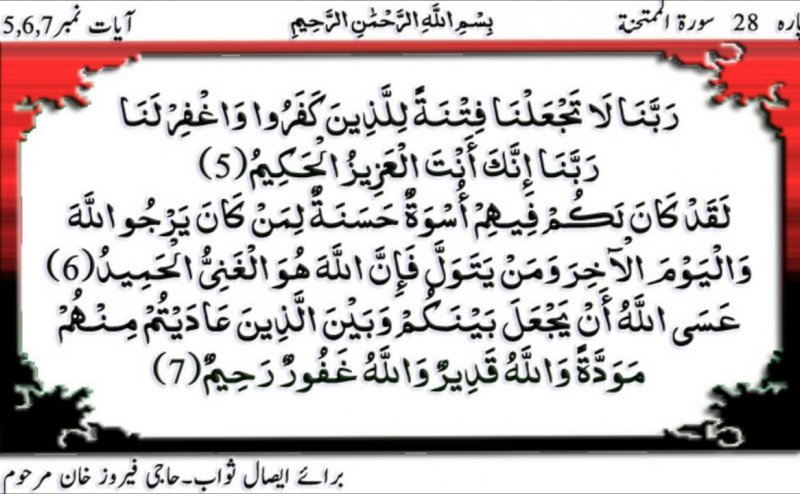 پارہ 28 سورۃ الممتحنۃ
بِسْمِ اللَّهِ الرَّحْمَٰنِ الرَّحِيمِ
آیات نمبر5,6,7
رَبَّنَا لَا تَجْعَلْنَا فِتْنَةً لِلَّذِينَ كَفَرُوا وَاغْفِرْ لَنَا
رَبَّنَا إِنَّكَ أَنْتَ الْعَزِيزُ الْحَكِيمُ(5)
لَقَدْ كَانَ لَكُمْ فِيهِمْ أُسْوَةٌ حَسَنَةٌ لِمَنْ كَانَ يَرْجُو اللَّهَ
وَالْيَوْمَ الْآخِرَ وَمَنْ يَتَوَلَّ فَإِنَّ اللَّهَ هُوَ الْغَنِيُّ الْحَمِيدُ(6)
عَسَى اللَّهُ أَنْ يَجْعَلَ بَيْنَكُمْ وَبَيْنَ الَّذِينَ عَادَيْتُمْ مِنْهُمْ
مَوَدَّةً وَاللَّهُ قَدِيرٌ وَاللَّهُ غَفُورٌ رَحِيمٌ(7)
برائے ایصال ثواب۔حاجی فیروز خان مرحوم